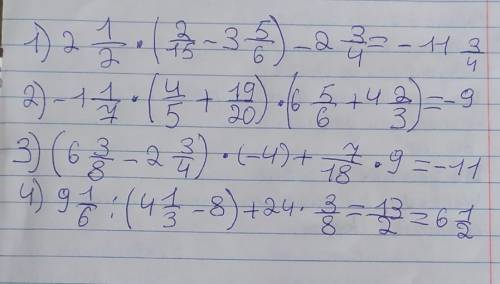 1) 2 1/2 · (2/15 - 3 5/6) - 2 3/4 = - 11 3/4
2) - 1 1/7 · (4/5 + 19/20) · (6 5/6 + 4 2/3) = -9
3) (6 3/8 - 2 3/4) · (-4) + 7/18 · 9 = -11
4) 9 1/6 : (4 1/3 - 8) + 24 · 3/8 = 13/2 = 6 1/2